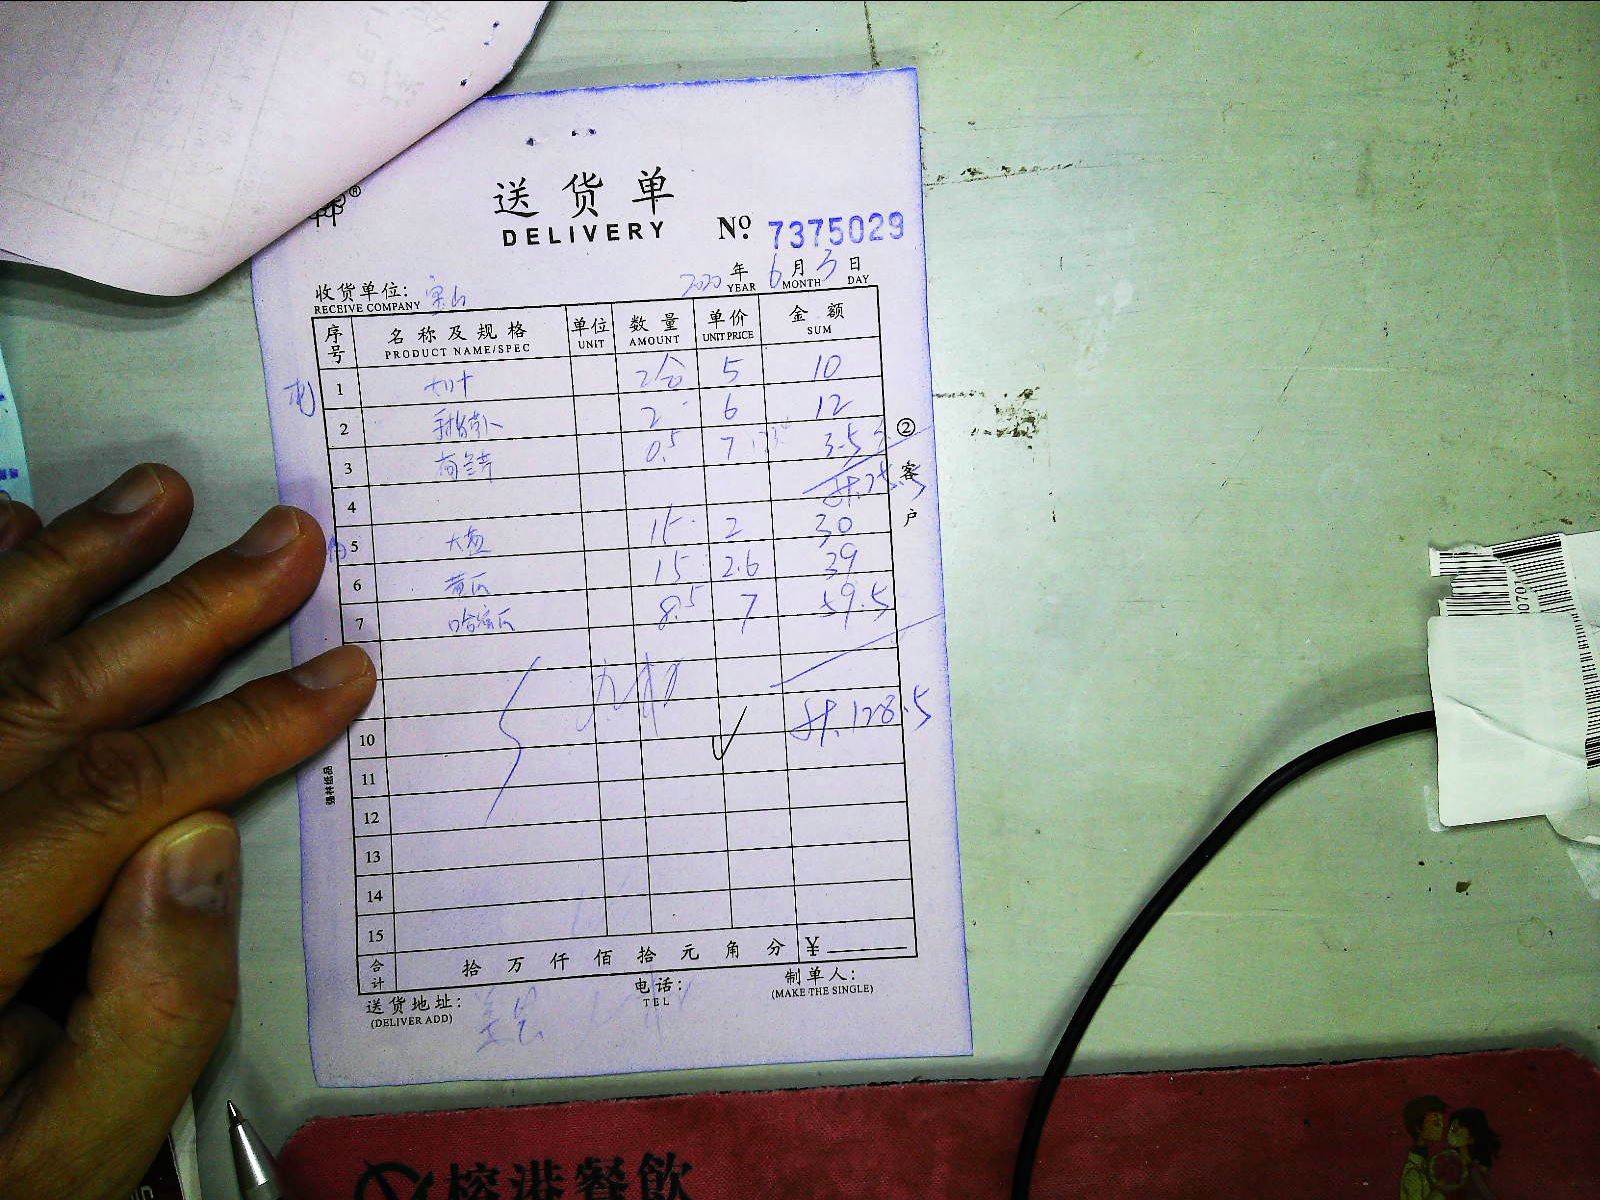 送货单
DELIVERY
No 7375029
2020 年 6 月 3 日
YEAR MONTH DAY
收货单位:
RECEIVE COMPANY
序号 名称及规格 单位 数量 单价 金额
PRODUCT NAME/SPEC UNIT AMOUNT UNIT PRICE SUM
1 2合 5 10
2 2 6 12
3 0.5 7 3.5
4 25.5
5 大 15 2 30
6 黄瓜 15 2.6 39
7 哈密瓜 8.5 7 59.5
10 128.5
11
12
13
14
15
合计 拾 万 仟 佰 拾 元 角 分 ¥
送货地址:
(DELIVER ADD)
电话:
TEL
制单人:
(MAKE THE SINGLE)
② 客户
强林纸品
榕港餐飲